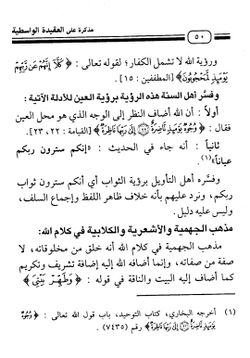 ٥٠
مذكرة على العقيدة الواسطية
ورؤية الله لا تشمل الكفار؛ لقوله تعالى: ﴿كَلَّا إِنَّهُمْ عَن رَّبِّهِمْ
يَوْمَئِذٍ لَّمَحْجُوبُونَ﴾ [المطففين: ١٥].
وفسَّر أهل السنة هذه الرؤية برؤية العين للأدلة الآتية:
أولاً: أن الله أضاف النظر إلى الوجه الذي هو محل العين
فقال: ﴿وُجُوهٌ يَوْمَئِذٍ نَّاضِرَةٌ (٢٢) إِلَى رَبِّهَا نَاظِرَةٌ﴾ [القيامة: ٢٢، ٢٣].
ثانياً: أنه جاء في الحديث: «إنكم سترون ربكم
عياناً»(١).
وفسَّره أهل التأويل برؤية الثواب أي أنكم سترون ثواب
ربكم، ونرد عليهم بأنه خلاف ظاهر اللفظ وإجماع السلف،
وليس عليه دليل.
مذهب الجهمية والأشعرية والكلابية في كلام الله:
مذهب الجهمية في كلام الله أنه خلق من مخلوقاته، لا
صفة من صفاته، وإنما أضافه الله إليه إضافة تشريف وتكريم
كما أضاف إليه البيت والناقة في قوله: ﴿وَطَهِّرْ بَيْتِيَ﴾
(١) أخرجه البخاري، كتاب التوحيد، باب قول الله تعالى: ﴿وُجُوهٌ
يَوْمَئِذٍ نَّاضِرَةٌ (٢٢) إِلَى رَبِّهَا نَاظِرَةٌ﴾ رقم (٧٤٣٥)